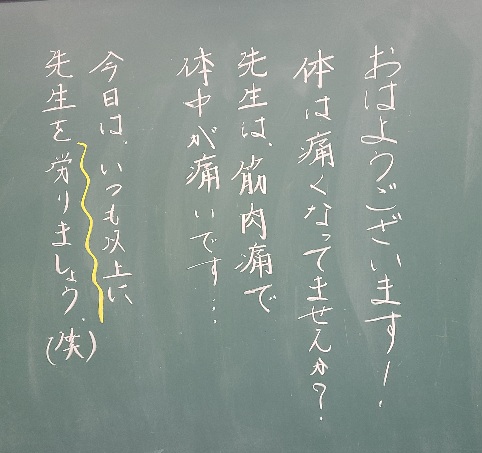 おはようございます!
体は痛くなってませんか?
先生は、筋肉痛で
体中が痛いです…
今日は、いつも以上に
先生を労りましょう。
(笑)